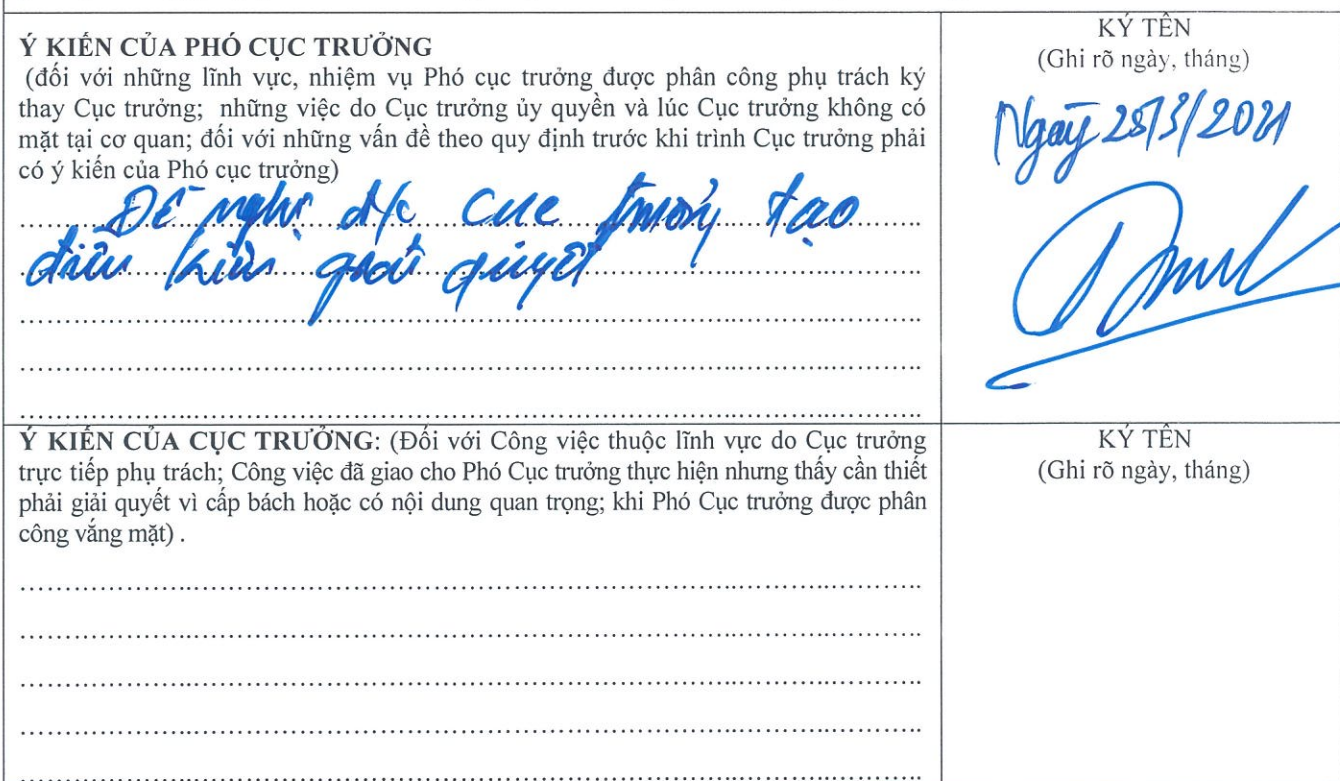 Ý KIẾN CỦA PHÓ CỤC TRƯỞNG
(đối với những lĩnh vực, nhiệm vụ Phó cục trưởng được phân công phụ trách ký
thay Cục trưởng; những việc do Cục trưởng ủy quyền và lúc Cục trưởng không có
mặt tại cơ quan; đối với những vấn đề theo quy định trước khi trình Cục trưởng phải
có ý kiến của Phó cục trưởng)
Đề nghị đ/c Cục trưởng tạo
điều kiện giải quyết
KÝ TÊN
(Ghi rõ ngày, tháng)
Ngày 25/3/2021
Ý KIẾN CỦA CỤC TRƯỞNG: (Đối với Công việc thuộc lĩnh vực do Cục trưởng
trực tiếp phụ trách; Công việc đã giao cho Phó Cục trưởng thực hiện nhưng thấy cần thiết
phải giải quyết vì cấp bách hoặc có nội dung quan trọng; khi Phó Cục trưởng được phân
công vắng mặt) .
KÝ TÊN
(Ghi rõ ngày, tháng)